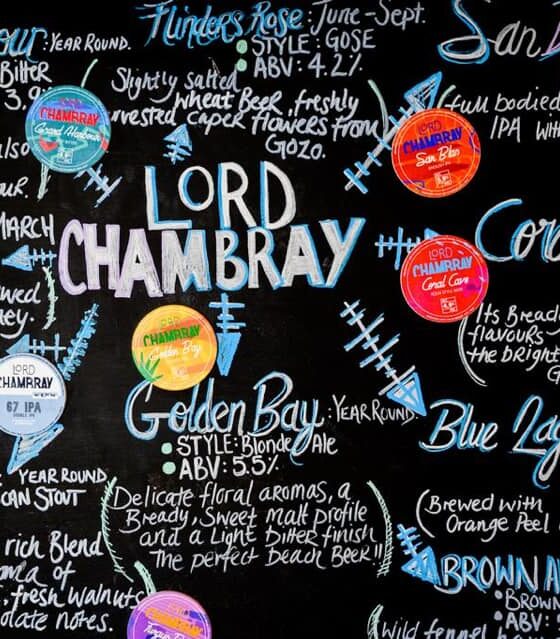 our: YEAR ROUND.
Bitter
3.9
also
OUR.
Flinders Rose: June-Sept.
STYLE: GOSE
ABV: 4.2%
Slightly salted
wheat Beer, freshly
harvested caper flowers from
Gozo.
San
full bodied
IPA
LORD
CHAMBRAY
Grand Harbour
LORD
CHAMBRAY
San Blas
ENGLISH IPA
LORD
CHAMBRAY
MARCH
ewed
ney.
LORD
CHAMBRAY
Coral Cave
Its Bread
flavours
the bright
G
LORD
CHAMBRAY
Golden Bay
LORD
CHAMBRAY
67 IPA
Golden Bay: YEAR ROUND.
STYLE: Blonde Ale
ABV: 5.5%
Delicate floral aromas, a
Bready, Sweet malt profile
and a Light Bitter finish
The perfect Beach Beer!!
Blue Lag
Brewed with
Orange Peel
YEAR ROUND
CAN STOUT
rich Blend
oma of
, fresh walnuts
olate notes.
LORD
CHAMBRAY
BROWN A
BROWN
ABV:
Wild fennel